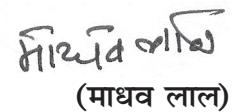 माधव लाल
(माधव लाल)